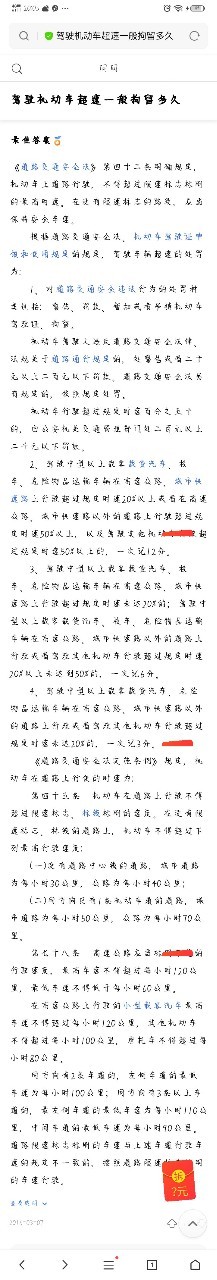 驾驶机动车超速一般拘留多久
驾驶机动车超速一般拘留多久
最佳答案
《道路交通安全法》第四十二条明确规定,
机动车上道路行驶,不得超过限速标志标明
的最高时速。在没有限速标志的路段,应当
保持安全车速。
根据道路交通安全法、机动车驾驶证申
领和使用规定的规定,驾驶车辆超速的处罚
为:
1、对道路交通安全违法行为的处罚种
类包括:警告、罚款、暂扣或者吊销机动车
驾驶证、拘留。
机动车驾驶人违反道路交通安全法律、
法规关于道路通行规定的,处警告或者二十
元以上二百元以下罚款。道路交通安全法另
有规定的,依照规定处罚。
机动车行驶超过规定时速百分之五十
的,由公安机关交通管理部门处二百元以上
二千元以下罚款。
2、驾驶中型以上载客载货汽车、校
车、危险物品运输车辆在高速公路、城市快
速路上行驶超过规定时速20%以上或者在高速
公路、城市快速路以外的道路上行驶超过规
定时速50%以上,以及驾驶其他机
过规定时速50%以上的,一次记12分。
3、驾驶中型以上载客载货汽车、校
车、危险物品运输车辆在高速公路、城市快
速路上行驶超过规定时速未达20%的;驾驶中
型以上载客载货汽车、校车、危险物品运输
车辆在高速公路、城市快速路以外的道路上
行驶或者驾驶其他机动车行驶超过规定时速
20%以上未达到50%的,一次记6分。
4、驾驶中型以上载客载货汽车、危险
物品运输车辆在高速公路、城市快速路以外
的道路上行驶或者驾驶其他机动车行驶超过
规定时速未达20%的,一次记3分。
《道路交通安全法实施条例》规定,机
动车在道路上行驶的时速为:
第四十五条 机动车在道路上行驶不得
超过限速标志、标线标明的速度。在没有限
速标志、标线的道路上,机动车不得超过下
列最高行驶速度:
(一)没有道路中心线的道路,城市道路
为每小时30公里,公路为每小时40公里;
(二)同方向只有1条机动车道的道路,城
市道路为每小时50公里,公路为每小时70公
里。
第七十八条 高速公路应当标
行驶速度,最高车速不得超过每小时120公
里,最低车速不得低于每小时60公里。
在高速公路上行驶的小型载客汽车最高
车速不得超过每小时120公里,其他机动车
不得超过每小时100公里,摩托车不得超过每
小时80公里。
同方向有2条车道的,左侧车道的最低
车速为每小时100公里;同方向有3条以上车
道的,最左侧车道的最低车速为每小时110公
里,中间车道的最低车速为每小时90公里。
道路限速标志标明的车速与上述车道行驶车
速的规定不一致的,按照道路限速
的车速行驶。
拆
1元
1